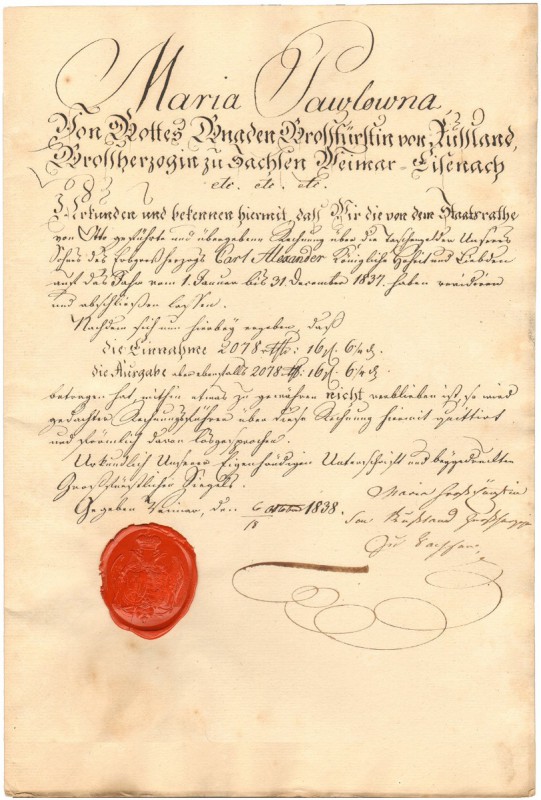 Maria Pawlowna,
Von Gottes Gnaden Grossfürstin von Russland,
Grossherzogin zu Sachsen Weimar-Eisenach
etc. etc. etc.
Urkunden und bekennen hiermit, daß Wir die von dem Staatsrathe
von Otto geführte und übergebene Rechnung über die Taschengelder Unseres
Sohns des Erbgroßherzogs Carl Alexander Königliche Hoheit und Liebden
auf das Jahr vom 1. Januar bis 31. December 1837. haben revidiren
und abschließen lassen.
Nachdem sich nun hierbey ergeben, daß
die Einnahme 2078 rthlr: 16 gl. 6¼ d.
die Ausgabe aber ebenfalls 2078 rthlr: 16 gl. 6¼ d.
betragen hat, mithin etwas zu gewähren nicht verblieben ist, so wird
gedachter Rechnungsführer über diese Rechnung hiermit quittirt
und förmlich davon losgesprochen.
Urkundlich Unserer Eigenhändigen Unterschrift und beygedruckten
Großfürstlichen Siegels.
Gegeben Weimar, den 6/18 October 1838.
Maria Großfürstin
von Rußland Großherzogin
zu Sachsen